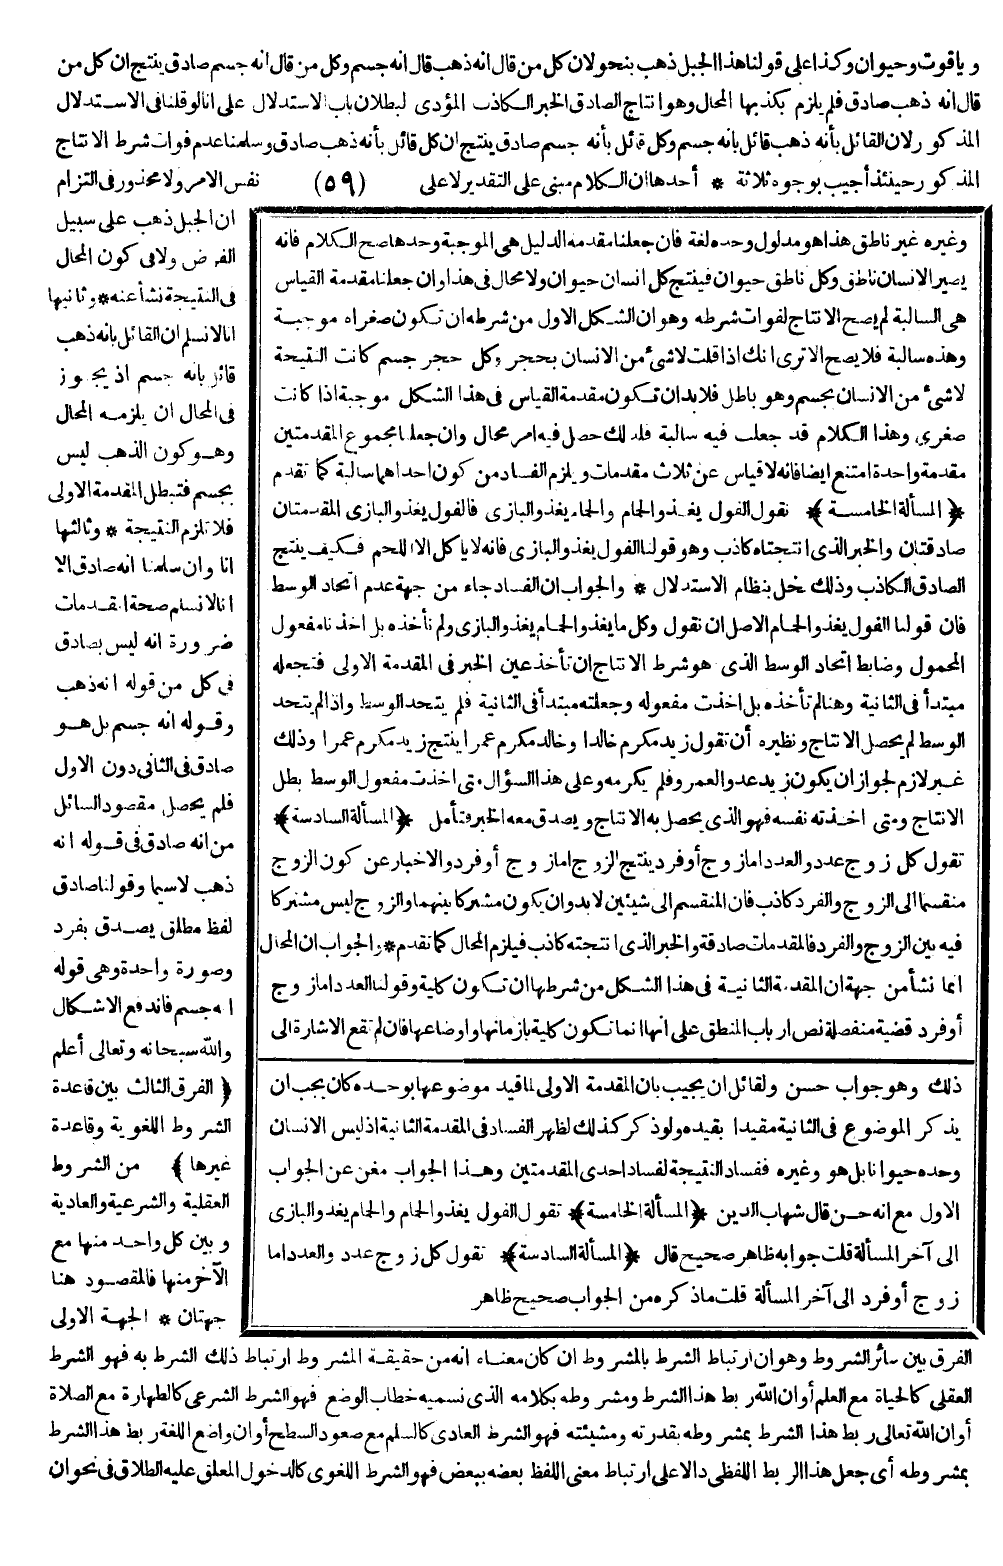 وياقوت وحيوان وكذا على قولنا هذا الجبل ذهب بنحو لان كل من قال انه ذهب قال انه جسم وكل من قال انه جسم صادق ينتج ان كل من
قال انه ذهب صادق فلم يلزم بكذبها المحال وهو انتاج الصادق الخبر الكاذب المؤدى لبطلان باب الاستدلال على انا لو قلنا فى الاستدلال
المذكور لان القائل بأنه ذهب قائل بانه جسم وكل قائل بأنه جسم صادق ينتج ان كل قائل بأنه ذهب صادق وسلمنا عدم فوات شرط الانتاج
المذكور حينئذ أجيب بوجوه ثلاثة * أحدها ان الكلام مبنى على التقدير لا على (٥٩) نفس الامر ولا محذور فى التزام
ان الجبل ذهب على سبيل
الفرض ولا فى كون المحال
فى النتيجة نشأ عنه * وثانيها
انا لا نسلم ان القائل بانه ذهب
قائل بانه جسم اذ يجوز
فى المحال ان يلزمه المحال
وهو كون الذهب ليس
بجسم فتبطل المقدمة الاولى
فلا تلزم النتيجة * وثالثها
انا وان سلمنا انه صادق الا
انا لا نسلم صحة المقدمات
ضرورة انه ليس بصادق
فى كل من قوله انه ذهب
وقوله انه جسم بل هو
صادق فى الثانى دون الاول
فلم يحصل مقصود السائل
من انه صادق فى قوله انه
ذهب لاسيما وقولنا صادق
لفظ مطلق يصدق بفرد
وصورة واحدة وهى قوله
انه جسم فاندفع الاشكال
والله سبحانه وتعالى أعلم
﴿ الفرق الثالث بين قاعدة
الشروط اللغوية وقاعدة
غيرها ﴾ من الشروط
العقلية والشرعية والعادية
وبين كل واحد منها مع
الآخر منها فالمقصود هنا
جهتان * الجهة الاولى
وغيره غير ناطق هذا هو مدلول وحده لغة فان جعلنا مقدمة الدليل هى الموجبة وحدها صح الكلام فانه
يصير الانسان ناطق وكل ناطق حيوان فينتج كل انسان حيوان ولا محال فى هذا وان جعلنا مقدمة القياس
هى السالبة لم يصح الانتاج لفوات شرطه وهو ان الشكل الاول من شرطه ان تكون صغراه موجبة
وهذه سالبة فلا يصح الا ترى انك اذا قلت لا شئ من الانسان بحجر وكل حجر جسم كانت النتيجة
لا شئ من الانسان بجسم وهو باطل فلا بد ان تكون مقدمة القياس فى هذا الشكل موجبة اذا كانت
صغرى وهذا الكلام قد جعلت فيه سالبة فلذلك حصل فيه امر محال وان جعلنا مجموع المقدمتين
مقدمة واحدة امتنع ايضا فانه لا قياس عن ثلاث مقدمات ويلزم الفساد من كون احداهما سالبة كما تقدم
﴿ المسألة الخامسة ﴾ نقول الفول يغذو الحمام والحمام يغذو البازى فالفول يغذو البازى المقدمتان
صادقتان والخبر الذى انتجتاه كاذب وهو قولنا الفول يغذو البازى فانه لا يأكل الا اللحم فكيف ينتج
الصادق الكاذب وذلك يخل بنظام الاستدلال * والجواب ان الفساد جاء من جهة عدم اتحاد الوسط
فان قولنا الفول يغذو الحمام الاصل ان نقول وكل ما يغذو الحمام يغذو البازى ولم نأخذه بل اخذنا مفعول
المحمول وضابط اتحاد الوسط الذى هو شرط الانتاج ان تأخذ عين الخبر فى المقدمة الاولى فتجعله
مبتدأ فى الثانية وهنا لم تأخذه بل اخذت مفعوله وجعلته مبتدأ فى الثانية فلم يتحد الوسط واذا لم يتحد
الوسط لم يحصل الانتاج ونظيره أن تقول زيد مكرم خالدا وخالد مكرم عمرا ينتج زيد مكرم عمرا وذلك
غير لازم لجواز ان يكون زيد عدوا لعمرو فلم يكرمه وعلى هذا السؤال متى اخذت مفعول الوسط بطل
الانتاج ومتى اخذته نفسه فهو الذى يحصل به الانتاج ويصدق معه الخبر فتأمل ﴿ المسألة السادسة ﴾
تقول كل زوج عدد والعدد اما زوج أو فرد ينتج الزوج اما زوج أو فرد والاخبار عن كون الزوج
منقسما الى الزوج والفرد كاذب فان المنقسم الى شيئين لا بد وان يكون مشتركا بينهما والزوج ليس مشتركا
فيه بين الزوج والفرد فالمقدمات صادقة والخبر الذى انتجته كاذب فيلزم المحال كما تقدم * والجواب ان المحال
انما نشأ من جهة ان المقدمة الثانية فى هذا الشكل من شرطها ان تكون كلية وقولنا العدد اما زوج
أو فرد قضية منفصلة نص ارباب المنطق على انها انما تكون كلية بازمانها واوضاعها فان لم تقع الاشارة الى
ذلك وهو جواب حسن ولقائل ان يجيب بان المقدمة الاولى لما قيد موضوعها بوحده كان يجب ان
يذكر الموضوع فى الثانية مقيدا بقيده ولو ذكر كذلك لظهر الفساد فى المقدمة الثانية اذ ليس الانسان
وحده حيوانا بل هو وغيره ففساد النتيجة لفساد احدى المقدمتين وهذا الجواب مغن عن الجواب
الاول مع انه حسن قال شهاب الدين ﴿ المسألة الخامسة ﴾ تقول الفول يغذو الحمام والحمام يغذو البازى
الى آخر المسألة قلت جوابه ظاهر صحيح قال ﴿ المسألة السادسة ﴾ نقول كل زوج عدد والعدد اما
زوج أو فرد الى آخر المسألة قلت ما ذكره من الجواب صحيح ظاهر
الفرق بين سائر الشروط وهو ان ارتباط الشرط بالمشروط ان كان معناه انه من حقيقة المشروط ارتباط ذلك الشرط به فهو الشرط
العقلى كالحياة مع العلم أو ان الله ربط هذا الشرط ومشروطه بكلامه الذى نسميه خطاب الوضع فهو الشرط الشرعى كالطهارة مع الصلاة
أو ان الله تعالى ربط هذا الشرط بمشروطه بقدرته ومشيئته فهو الشرط العادى كالسلم مع صعود السطح أو ان واضع اللغة ربط هذا الشرط
بمشروطه أى جعل هذا الربط اللفظى دالا على ارتباط معنى اللفظ بعضه ببعض فهو الشرط اللغوى كالدخول المعلق عليه الطلاق فى نحو ان